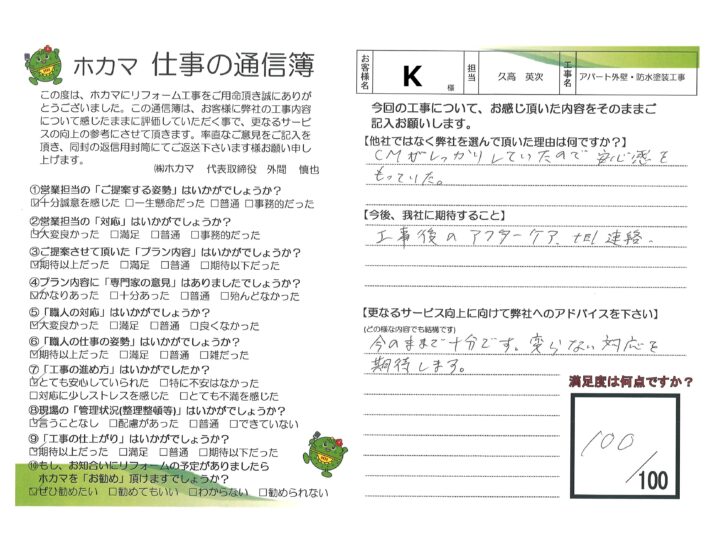 ホカマ 仕事の通信簿
この度は、ホカマにリフォーム工事をご用命頂き誠にありが
とうございました。この通信簿は、お客様に弊社の工事内容
について感じたままに評価していただく事で、更なるサービ
スの向上の参考にさせて頂きます。率直なご意見をご記入を
頂き、同封の返信用封筒にてご返送下さいます様お願い申し
上げます。
㈱ホカマ 代表取締役 外間 慎也
①営業担当の「ご提案する姿勢」はいかがでしょうか?
☑十分誠意を感じた □一生懸命だった □普通 □事務的だった
②営業担当の「対応」はいかがでしょうか?
☑大変良かった □満足 □普通 □事務的だった
③ご提案させて頂いた「プラン内容」はいかがでしょうか?
☑期待以上だった □満足 □普通 □期待以下だった
④プラン内容に「専門家の意見」はありましたでしょうか?
☑かなりあった □十分あった □普通 □殆んどなかった
⑤「職人の対応」はいかがでしょうか?
☑大変良かった □満足 □普通 □良くなかった
⑥「職人の仕事の姿勢」はいかがでしょうか?
☑期待以上だった □満足 □普通 □雑だった
⑦「工事の進め方」はいかがでしたでしたか?
☑とても安心していられた □特に不安はなかった
□対応に少しストレスを感じた □とても不満を感じた
⑧現場の「管理状況(整理整頓等)」はいかがでしょうか?
☑言うことなし □配慮があった □普通 □できていない
⑨「工事の仕上がり」はいかがでしょうか?
☑期待以上だった □満足 □普通 □期待以下だった
⑩もし、お知合いにリフォームの予定がありましたら
ホカマを「お勧め」頂けますでしょうか?
☑ぜひ勧めたい □勧めてもいい □わからない □勧められない
お客様名 K 様 担当 久高 英次 工事名 アパート外壁・防水塗装工事
今回の工事について、お感じ頂いた内容をそのままご
記入お願いします。
【他社ではなく弊社を選んで頂いた理由は何ですか?】
CMがしっかりしていたので安心感を
もっていた。
【今後、我社に期待すること】
工事後のアフターケア、tel連絡。
【更なるサービス向上に向けて弊社へのアドバイスを下さい】
(どの様な内容でも結構です)
今のままで十分です。変らない対応を
期待します。
満足度は何点ですか?
100
/100